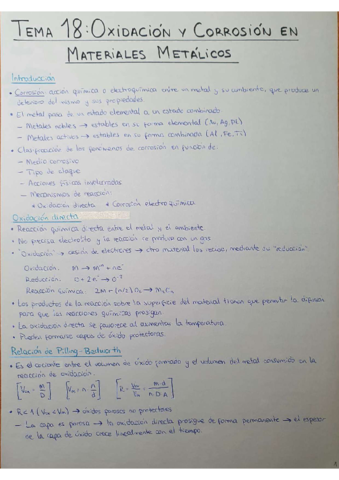 TEMA 18: OXIDACIÓN Y CORROSIÓN EN
MATERIALES METÁLICOS
Introducción
• Corrosión: acción química o electroquímica entre un metal y su ambiente, que produce un
deterioro del mismo y sus propiedades
• El metal pasa de un estado elemental a un estado combinado
— Metales nobles → estables en su forma elemental (Au, Ag, Pt)
— Metales activos → estables en su forma combinada (Al, Fe, Ti)
• Clasificación de los fenómenos de corrosión en función de:
— Medio corrosivo
— Tipo de ataque
— Acciones físicas involucradas
— Mecanismos de reacción:
* Oxidación directa * Corrosión electroquímica
Oxidación directa
• Reacción química directa entre el metal y el ambiente
• No precisa electrolito y la reacción se produce con un gas
• "Oxidación" → cesión de electrones → otro material los recibe, mediante su "reducción":
Oxidación: M → Mⁿ⁺ + ne⁻
Reducción: O + 2e⁻ → O²⁻
Reacción química: 2M + (n/2) O₂ → M₂Oₙ
• Los productos de la reacción sobre la superficie del material tienen que permitir la difusión
para que las reacciones químicas prosigan
• La oxidación directa se favorece al aumentar la temperatura
• Pueden formarse capas de óxido protectoras
Relación de Pilling-Bedworth
• Es el cociente entre el volumen de óxido formado y el volumen del metal consumido en la
reacción de oxidación.
• R < 1 → óxidos porosos no protectores
— La capa es porosa → la oxidación directa prosigue de forma permanente → el espesor
de la capa de óxido crece linealmente con el tiempo.